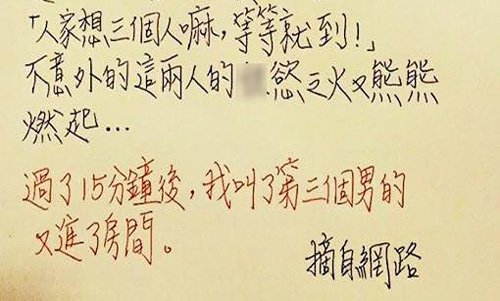 「人家想三個人嘛，等等就到!」
不意外的這兩人的慾之火又熊熊
燃起...
過了15分鐘後，我叫了第三個男的
又進了房間。
摘自網路